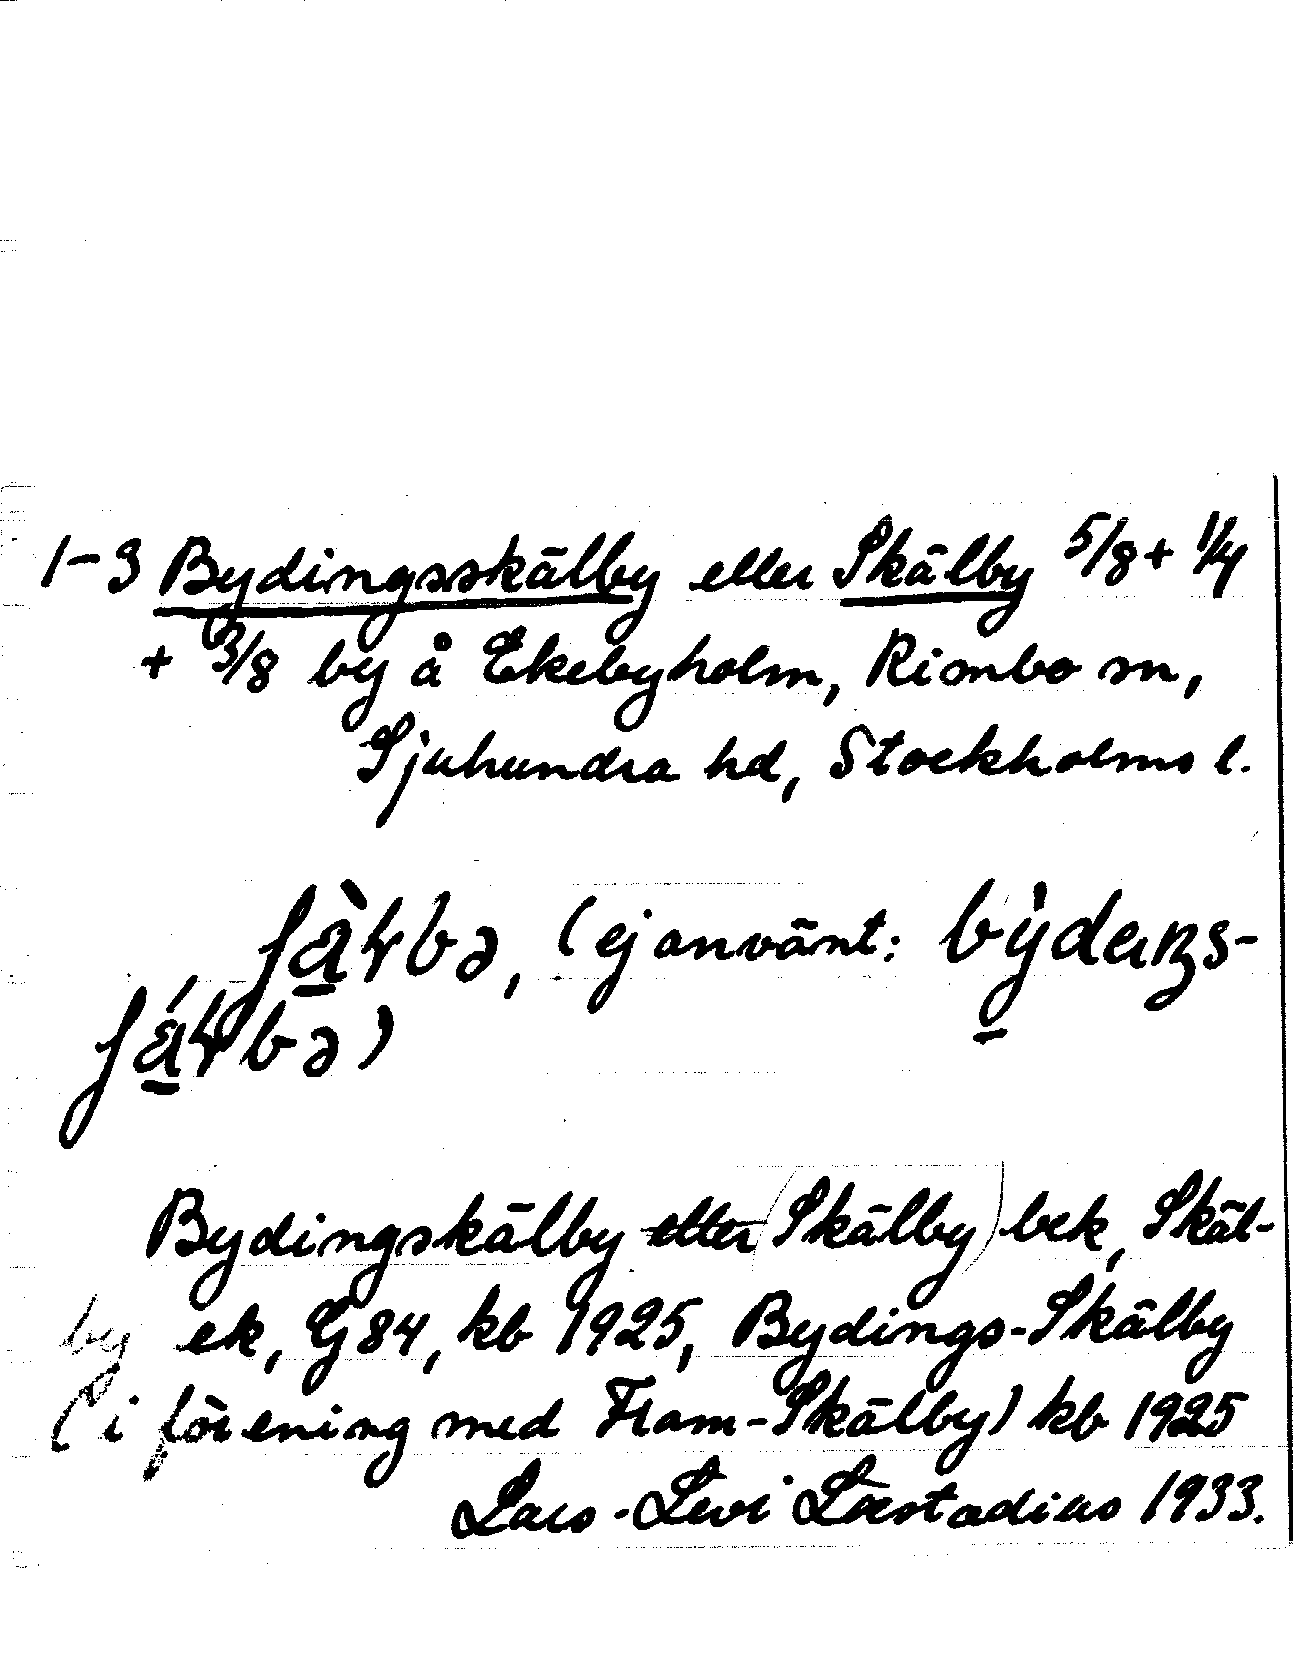 1-3 Bydingsskälby eller Skälby 5/8 + 1/4
+ 3/8 by å Ekebyholm, Rimbo sn,
Sjuhundra hd, Stockholms l.
(ej använt:
Bydingskälby eller (Skälby) bek, Skäl-
by ek, Gj 84, kb 1925, Bydings-Skälby
(i förening med Fram-Skälby) kb 1925
Lars-Levi Læstadius 1933.